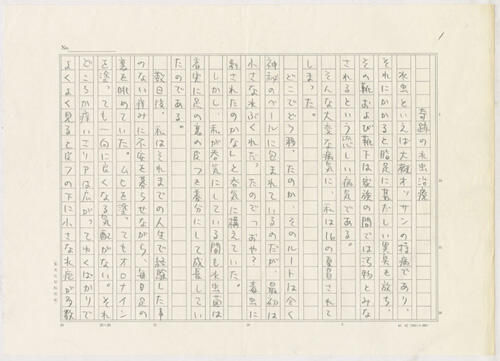 1
奇跡の水虫治療
水虫といえば大概オッサンの持病であり、
それにかかると脂足に甚だしい異臭を放ち、
その靴および靴下は家族の間では汚物とみな
されるという恐しい病気である。
そんな大変な病気に、私は16の夏冒されて
しまった。
どこでどう移ったのか、そのルートは全く
神秘のベールに包まれているのだが、最初は
小さな水ぶくれだったので「おや? 毒虫に
刺されたのかな」と呑気に構えていた。
しかし、私が呑気にしている間も水虫菌は
着実に足の裏の皮を養分にして成長してい
たのである。
数日後、私はそれまでの人生で経験した事
のない痒みに不安を募らせながら、毎日足の
裏を眺めていた。ムヒを塗ってもオロナイン
を塗っても一向に良くなる気配がない。それ
どころか痒いエリアは広がってゆくばかりで
よくよく見ると皮の下に小さな水疱が多数
No.